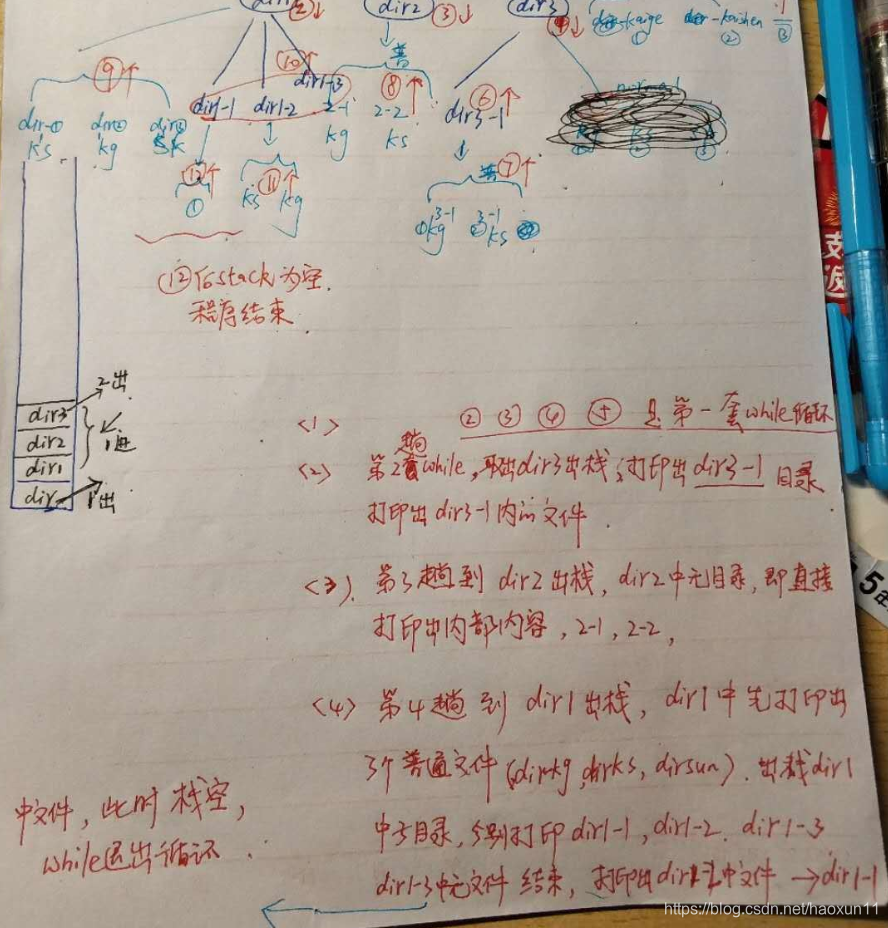 ② dir2 ③ dir3
-kaige ① -kaishen ②
⑨ ⑩ 普
dir1-3 ⑧ ⑥
dir1-1 dir1-2 2-1 2-2 dir3-1
kg ks
ks kg
① ks ⑪ kg 普 ⑦
kg 3-1 3-1 ks
⑫后stack为空.
程序结束
2出
dir3
dir2 1进
dir1
dir 1出
<1> ② ③ ④ ⑤ 是第一套while循环
<2> 第2趟while,取出dir3出栈;打印出dir3-1目录
打印出dir3-1内的文件.
<3>. 第3趟到dir2出栈,dir2中无目录,即直接
打印出内部内容,2-1,2-2,
<4> 第4趟到dir1出栈,dir1中先打印出
3个普通文件(dirkg,dirks,dirsun).出栈dir1
中3目录,分别打印dir1-1,dir1-2.dir1-3
dir1-3中无文件 结束,打印出dir1-2中文件→dir1-1
中文件,此时栈空,
while退出循环.
支
返
5
https://blog.csdn.net/haoxun11